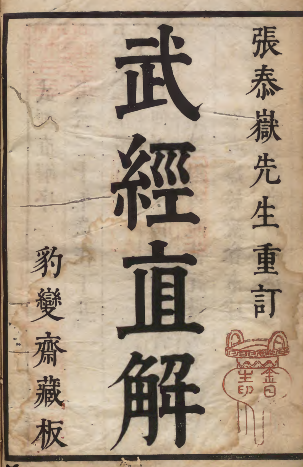 張泰嶽先生重訂
武經直解
豹變齋藏板